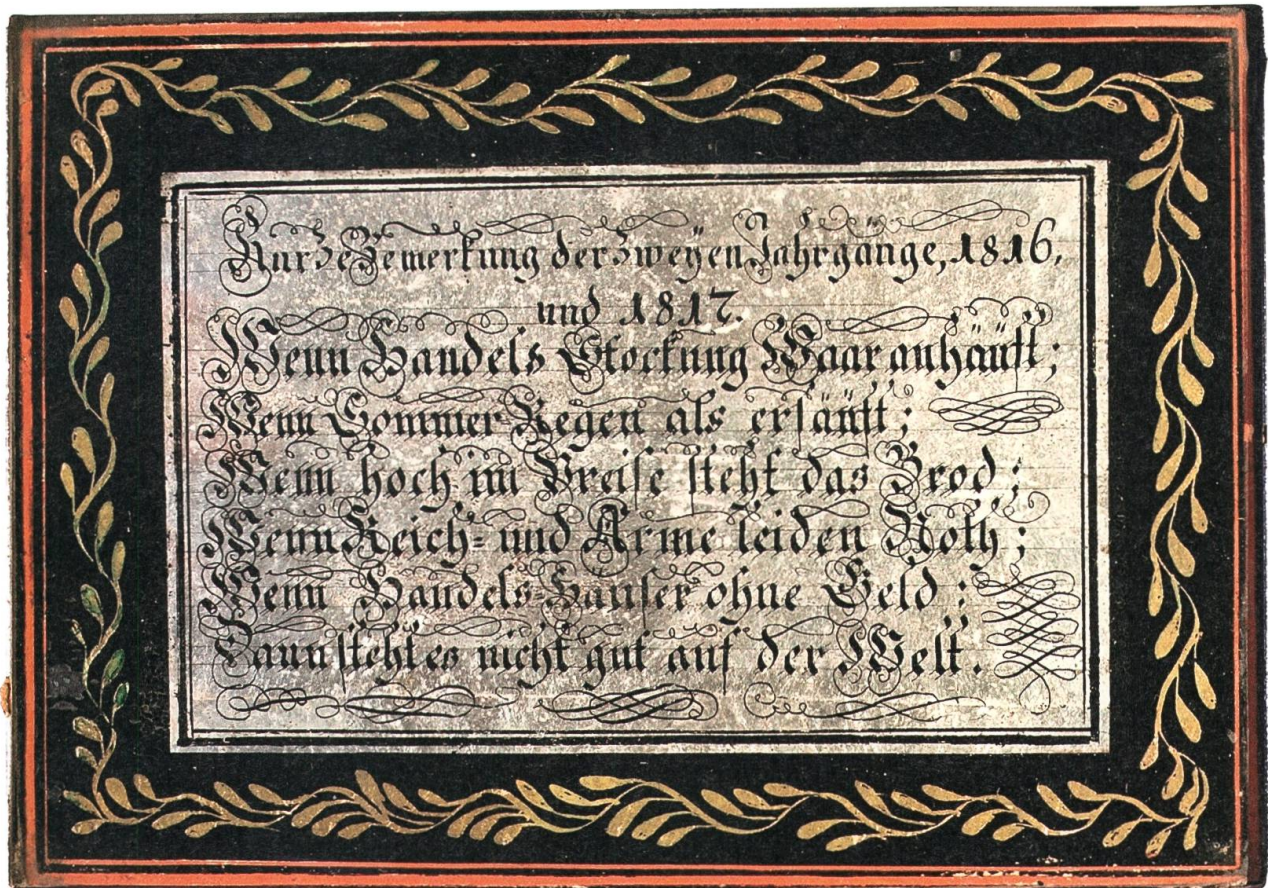 Kurze Bemerkung der zweÿen Jahrgänge, 1816,
und 1817.
Wenn Handels Stockung Waar anhäuft;
Wenn Sommer Regen als ersäüft;
Wenn hoch im Preise steht das Brod;
Wenn Reich- und Arme leiden Noth;
Wenn Handels-Hauser ohne Geld;
Dann steht es nicht gut auf der Welt.